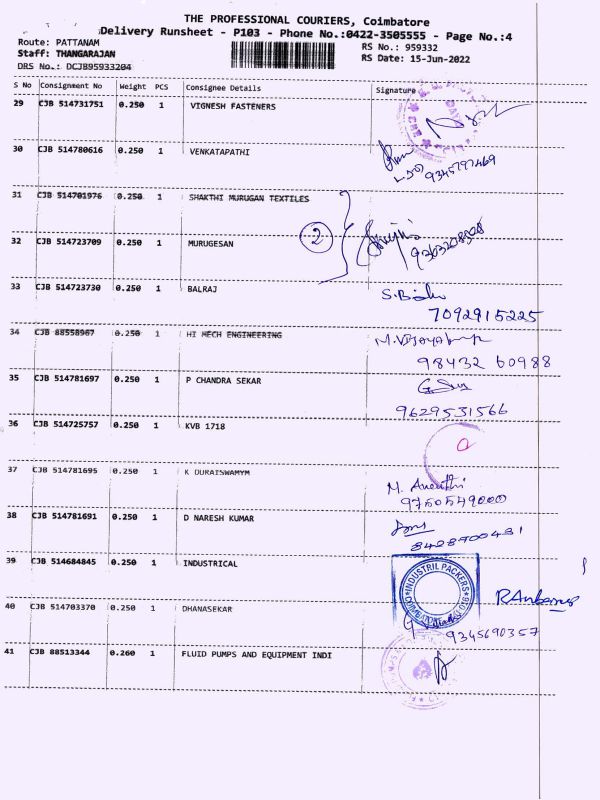 THE PROFESSIONAL COURIERS, Coimbatore
Delivery Runsheet - P103 - Phone No.:0422-3505555 - Page No.:4
Route: PATTANAM
RS No.: 959332
Staff: THANGARAJAN
RS Date: 15-Jun-2022
DRS No.: DCJB95933204
S No Consignment No Weight PCS Consignee Details Signature
29 CJB 514731751 0.250 1 VIGNESH FASTENERS
30 CJB 514780616 0.250 1 VENKATAPATHI
9345797469
31 CJB 514701976 0.250 1 SHAKTHI MURUGAN TEXTILES
2
32 CJB 514723709 0.250 1 MURUGESAN
33 CJB 514723730 0.250 1 BALRAJ
7092915225
34 CJB 88558967 0.250 1 HI MECH ENGINEERING
98432 60988
35 CJB 514781697 0.250 1 P CHANDRA SEKAR
9629531566
36 CJB 514725757 0.250 1 KVB 1718
37 CJB 514781695 0.250 1 K DURAISWAMYM
9750549000
38 CJB 514781691 0.250 1 D NARESH KUMAR
8428900431
39 CJB 514684845 0.250 1 INDUSTRICAL
INDUSTRIL PACKERS
40 CJB 514703370 0.250 1 DHANASEKAR
9345690357
41 CJB 88513344 0.260 1 FLUID PUMPS AND EQUIPMENT INDI